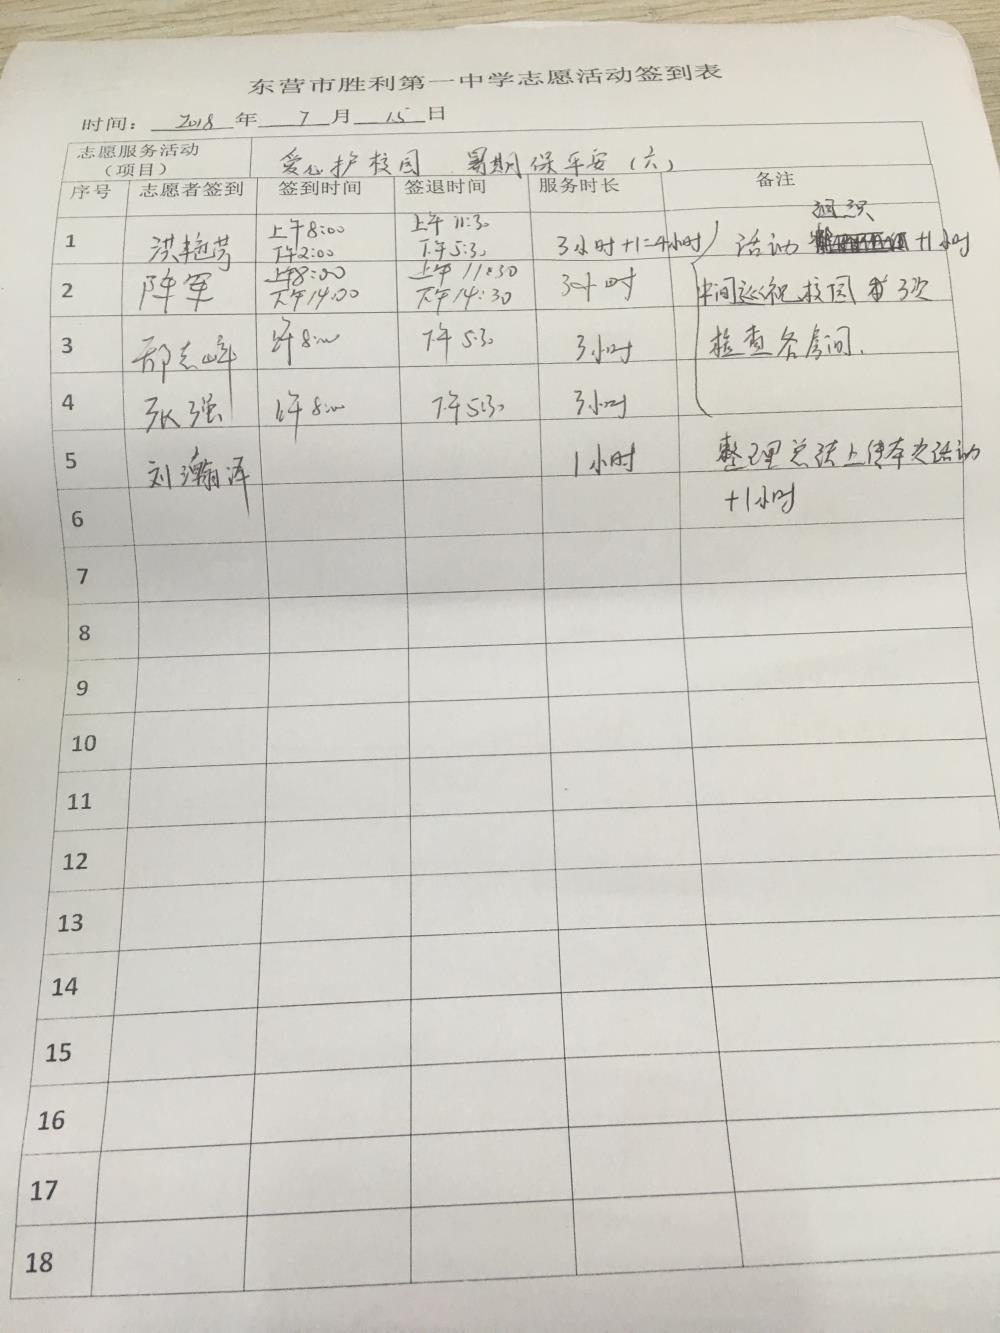 东营市胜利第一中学志愿活动签到表
时间: 2018 年 7 月 15 日
志愿服务活动（项目） 爱心护校园 暑期保平安（六）
序号 志愿者签到 签到时间 签退时间 服务时长 备注
1 洪艳芳 上午8:00 下午2:00 上午11:30 下午5:30 3小时+1=4小时 活动 组织 +1小时
2 陈军 上午8:00 下午14:00 上午11:30 下午14:30 3小时 中间巡视校园 3次
3 邢志峰 上午8:00 下午5:30 3小时 检查各房间.
4 张强 上午8:00 下午5:30 3小时
5 刘瀚泽 1小时 整理总结上传本次活动
+1小时
6
7
8
9
10
11
12
13
14
15
16
17
18